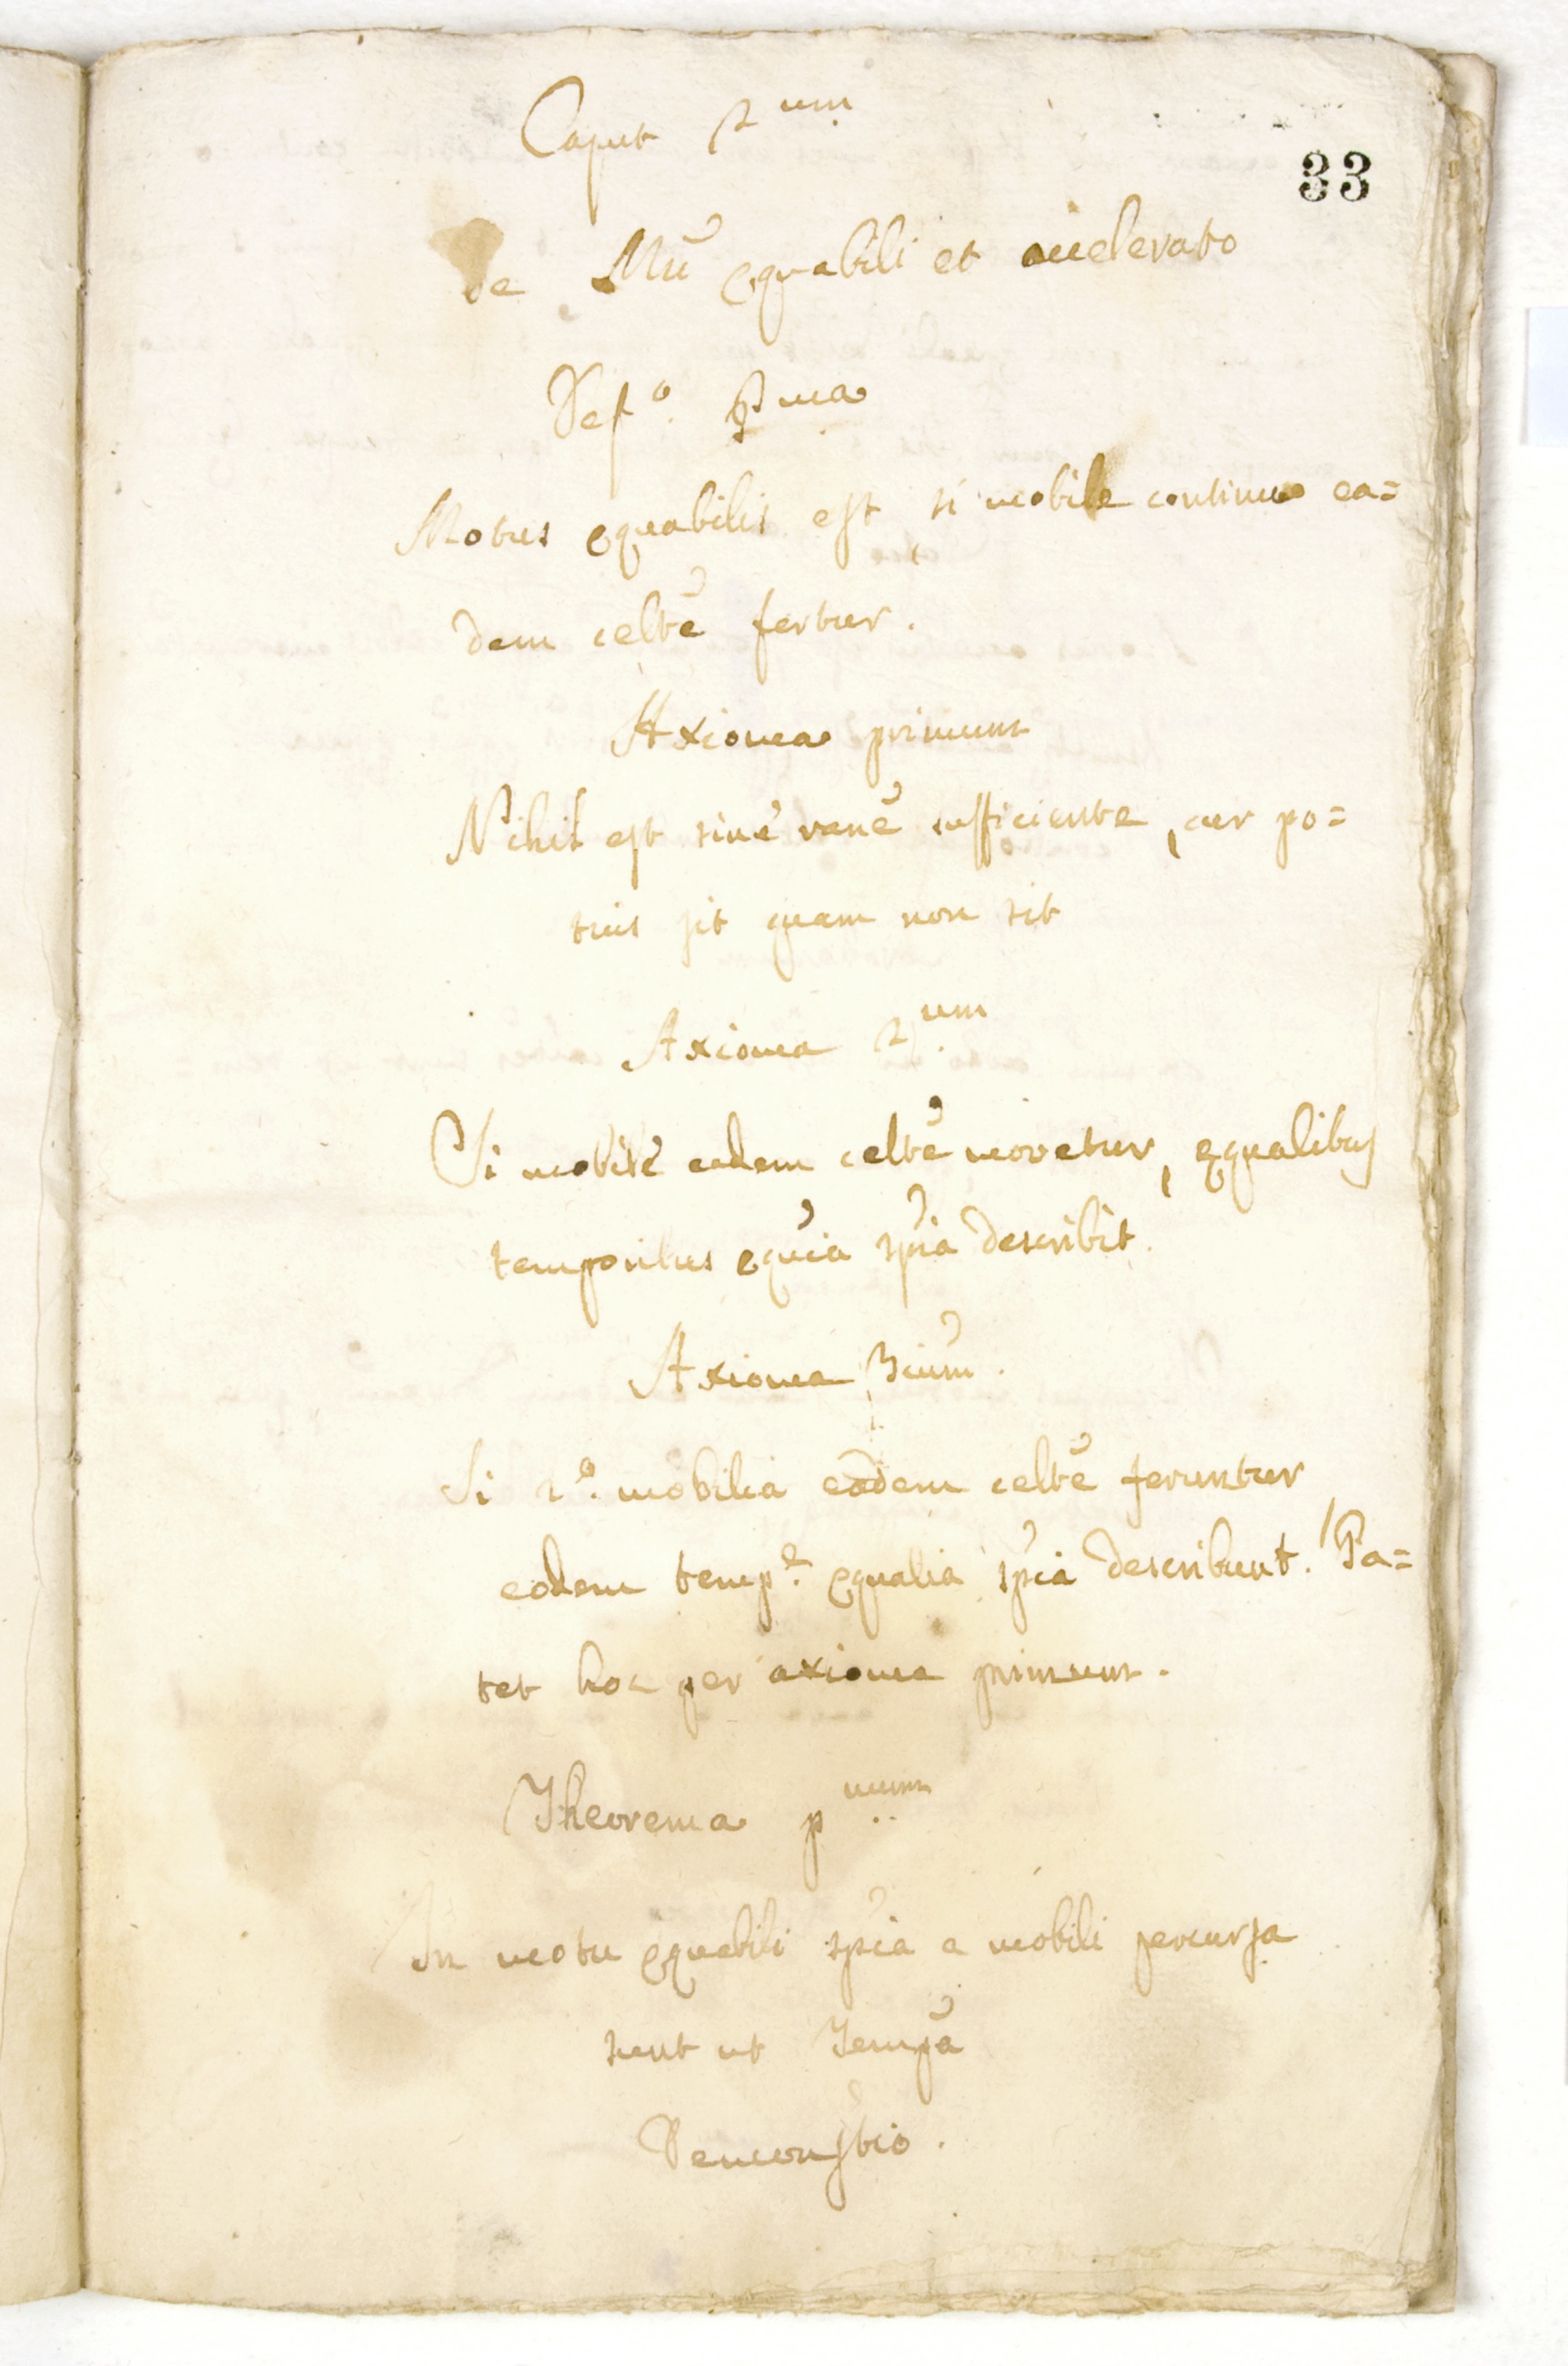 Caput 2um
33
De Mũ equabili et accelerato
Defo. pma
Motus equabilis est si mobile continuo ea=
dem celtẽ fertur.
Axioma primum
Nihil est sinè ranẽ sufficiente, cur po=
tius sit quam non sit
Axioma 2um
Si mobile eadem celtẽ movetur, equalibus
temporibus equĩa spĩa describit.
Axioma 3ium.
Si 2o. mobilia eadem celtẽ feruntur
eodem tempe. equalia spĩa describunt. Pa=
tet hoc per axioma primum.
Theorema pmum
In motu equabili spĩa a mobili percursa
sunt ut Tempã
Demonstio.